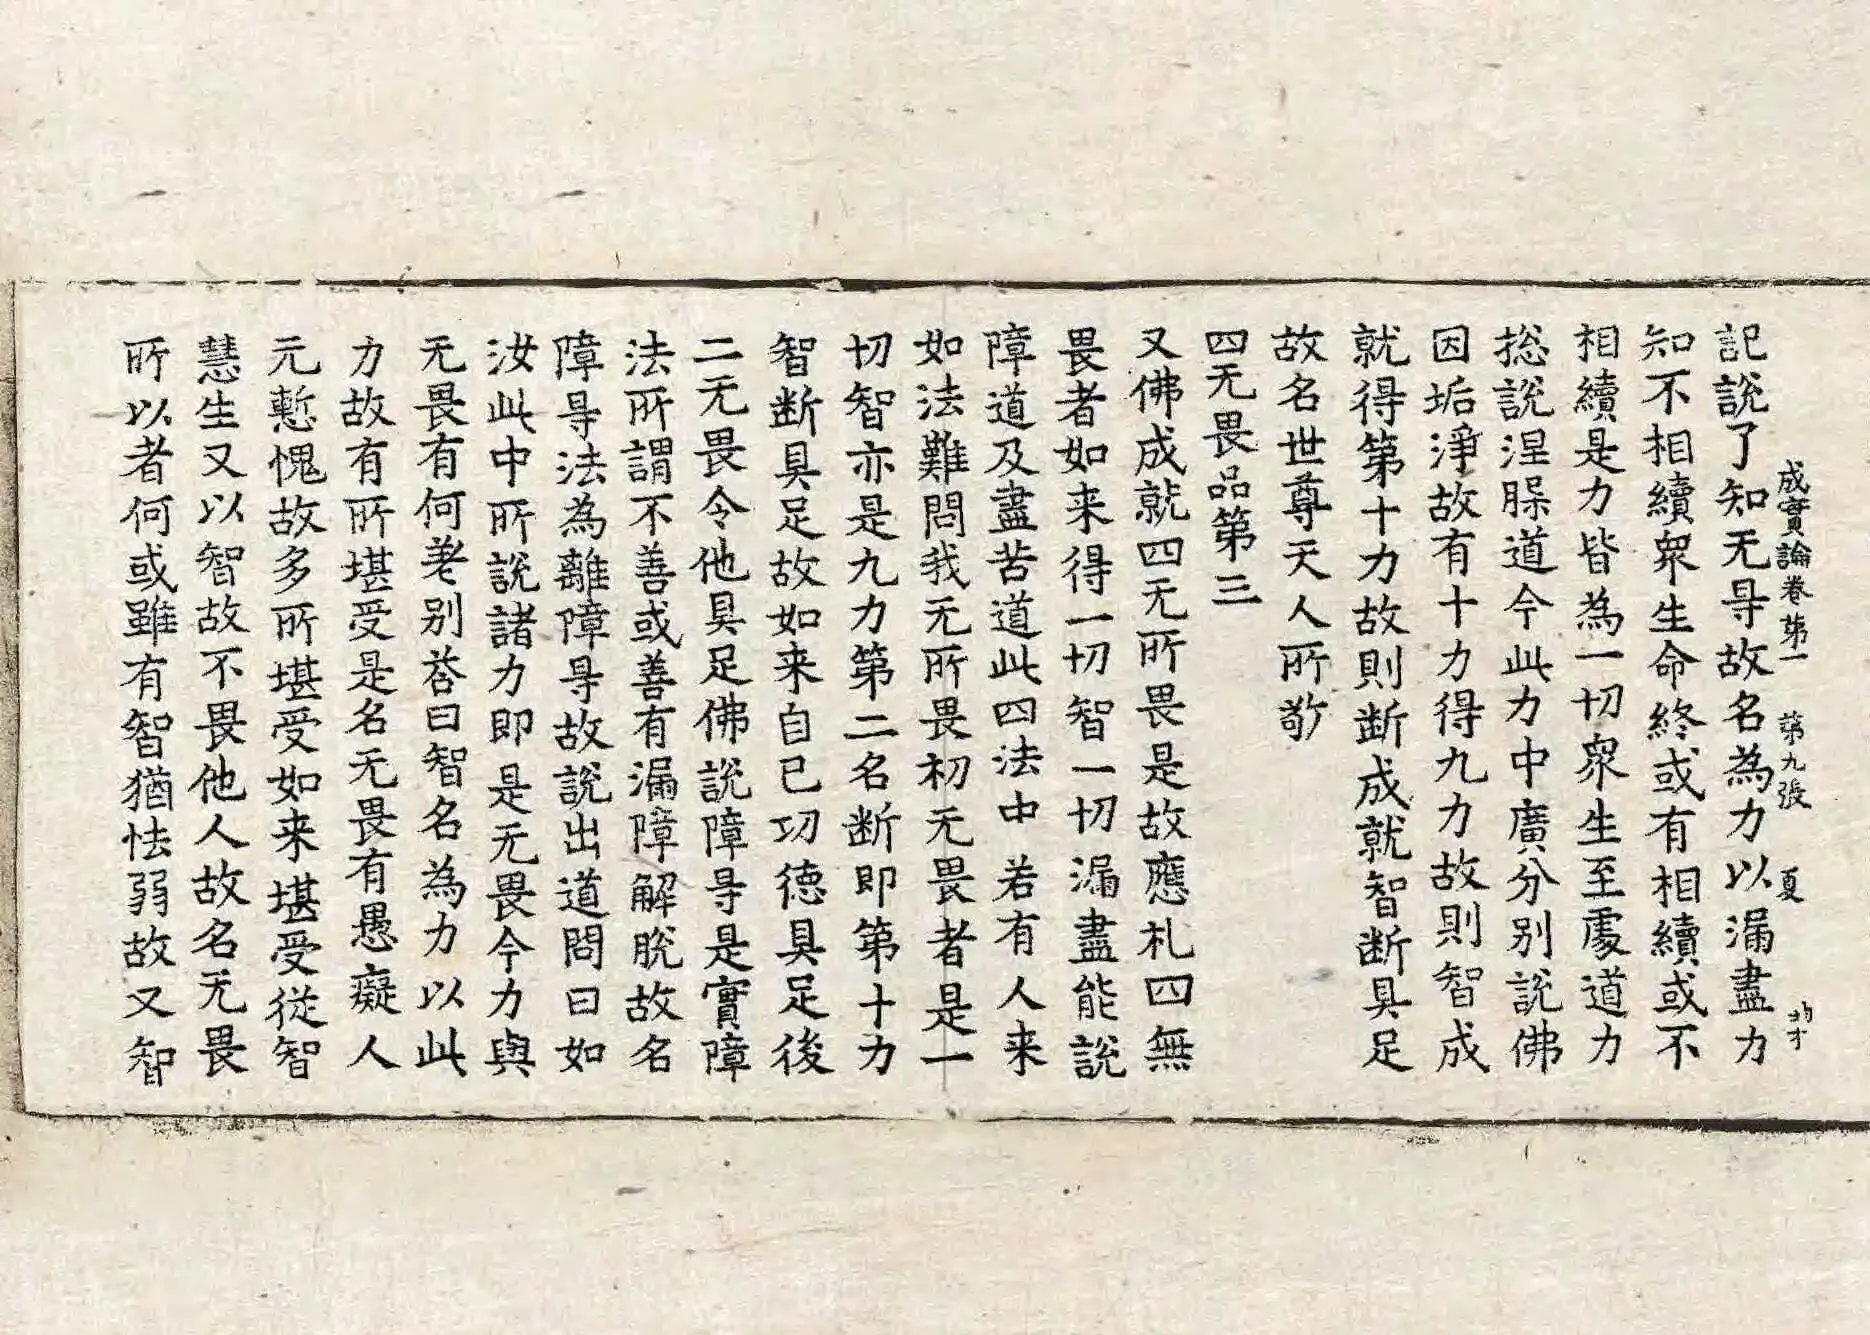 成實論卷第一　第九張　夏
記說了知无㝵故名為力以漏盡力
知不相續衆生命終或有相續或不
相續是力皆為一切衆生至處道力
捴說涅槃道今此力中廣分別說佛
因垢淨故有十力得九力故則智成
就得第十力故則断成就智断具足
故名世尊天人所敬
四无畏品第三
又佛成就四无所畏是故應礼四無
畏者如来得一切智一切漏盡能說
障道及盡苦道此四法中若有人来
如法難問我无所畏初无畏者是一
切智亦是九力第二名断即第十力
智断具足故如来自已功德具足後
二无畏令他具足佛說障㝵是實障
法所謂不善或善有漏障解脫故名
障㝵法為離障㝵故說出道問曰如
汝此中所說諸力即是无畏今力與
无畏有何差别荅曰智名為力以此
力故有所堪受是名无畏有愚癡人
无慙愧故多所堪受如来堪受從智
慧生又以智故不畏他人故名无畏
所以者何或雖有智猶怯弱故又智